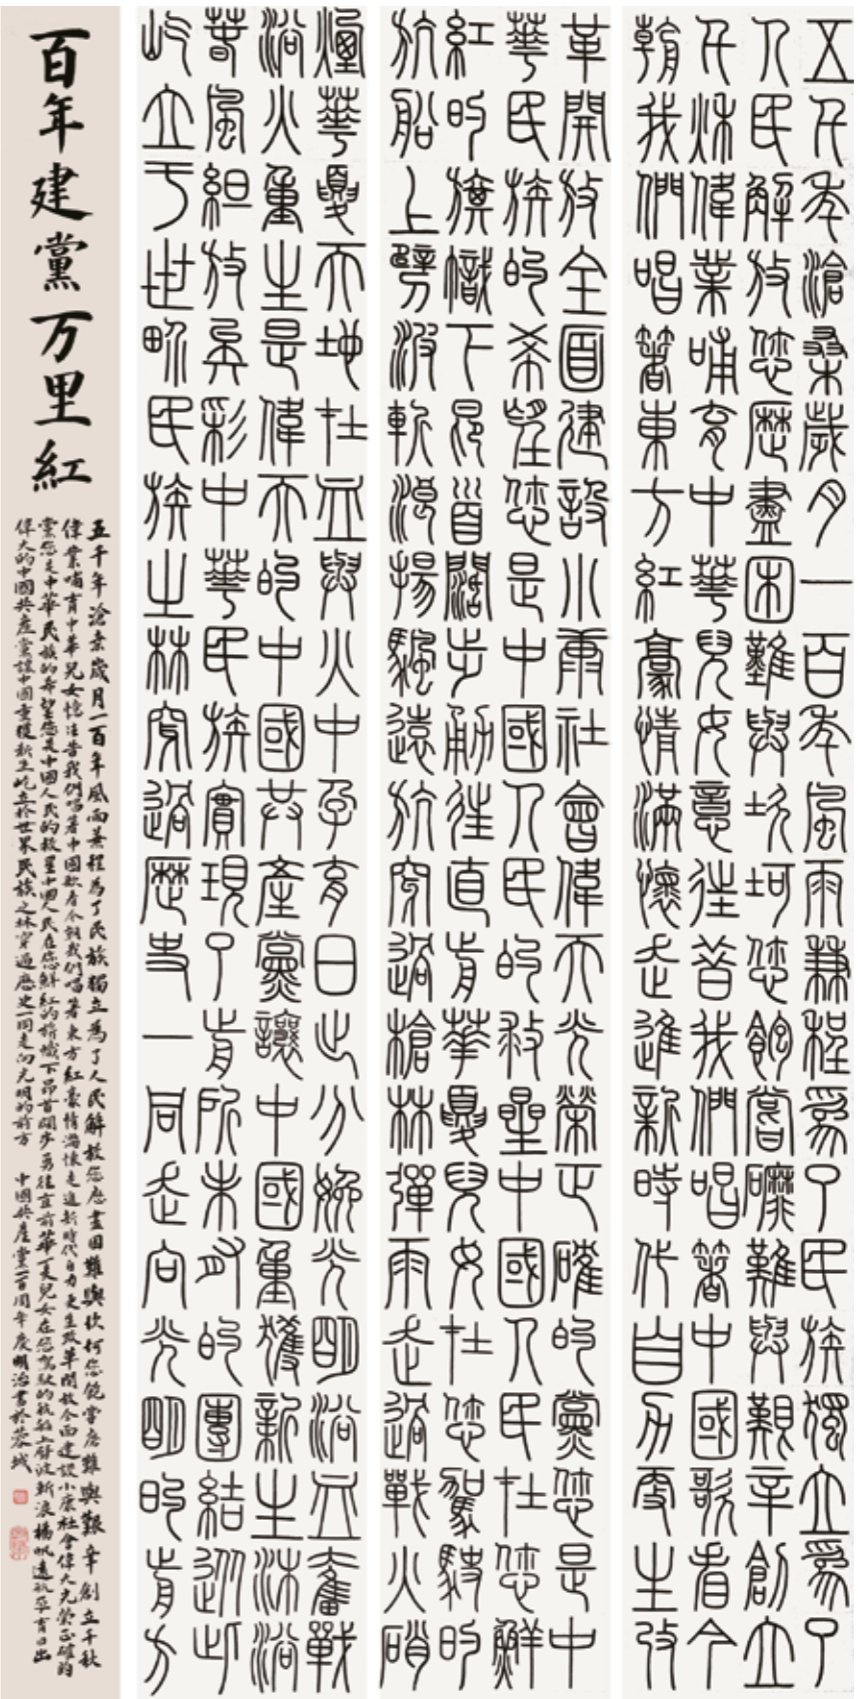 五千年滄桑歲月一百年風雨兼程爲了民族獨立爲了
人民解放您歷盡困難與坎坷您飽嘗磨難與艱辛創立
千秋偉業哺育中華兒女意往昔我們唱箸中國歌看今
朝我們唱箸東方紅豪情滿懷走進新時代自力更生改
革開放全面建設小康社會偉大光榮正確的黨您是中
華民族的希望您是中國人民的救星中國人民在您鮮
紅的旗幟下昂首闊步勇往直前華夏兒女在您駕駛的
航船上劈波斬浪揚颿遠航穿過槍林彈雨走過戰火硝
煙華夏天地在血與火中孕育日出分娩光明浴血奮戰
浴火重生是偉大的中國共產黨讓中國重獲新生沐浴
春風綻放異彩中華民族實現了前所未有的團結進步
屹立于世界民族之林穿過歷史一同走向光明的前方
百年建黨万里紅
五千年滄桑歲月一百年風雨兼程為了民族獨立為了人民解放您歷盡困難與坎坷您飽嘗磨難與艱辛創立千秋
偉業哺育中華兒女憶往昔我們唱著中國歌看今朝我們唱著東方紅豪情滿懷走進新時代自力更生改革開放全面建設小康社會偉大光榮正確的
黨您是中華民族的希望您是中國人民的救星中國人民在您鮮紅的旗幟下昂首闊步勇往直前華夏兒女在您駕駛的航船上劈波斬浪揚帆遠航孕育日出
偉大的中國共產黨讓中國重獲新生屹立於世界民族之林穿過歷史一同走向光明的前方 中國共產黨一百周年慶明治書於蓉城